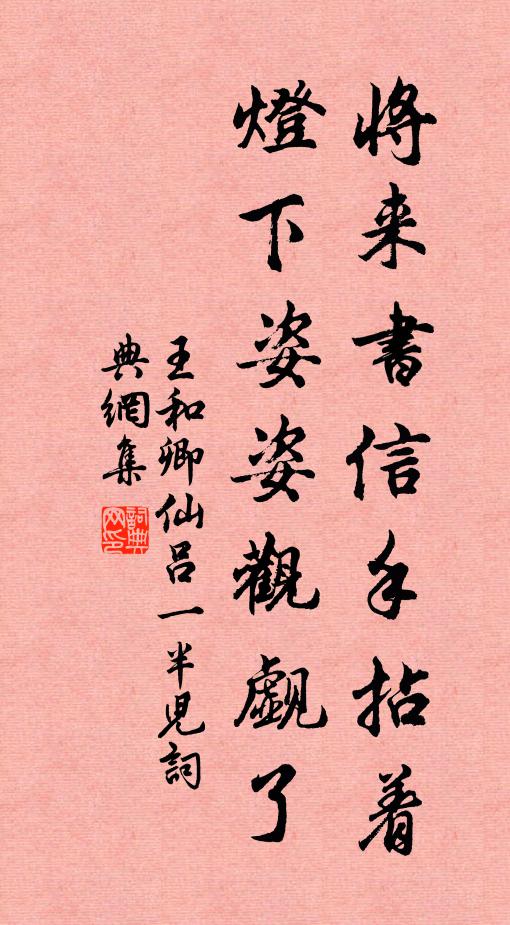 将来書信手拈着
燈下姿姿觀覷了
王和卿仙呂一半児詞
典網集
詞典網印